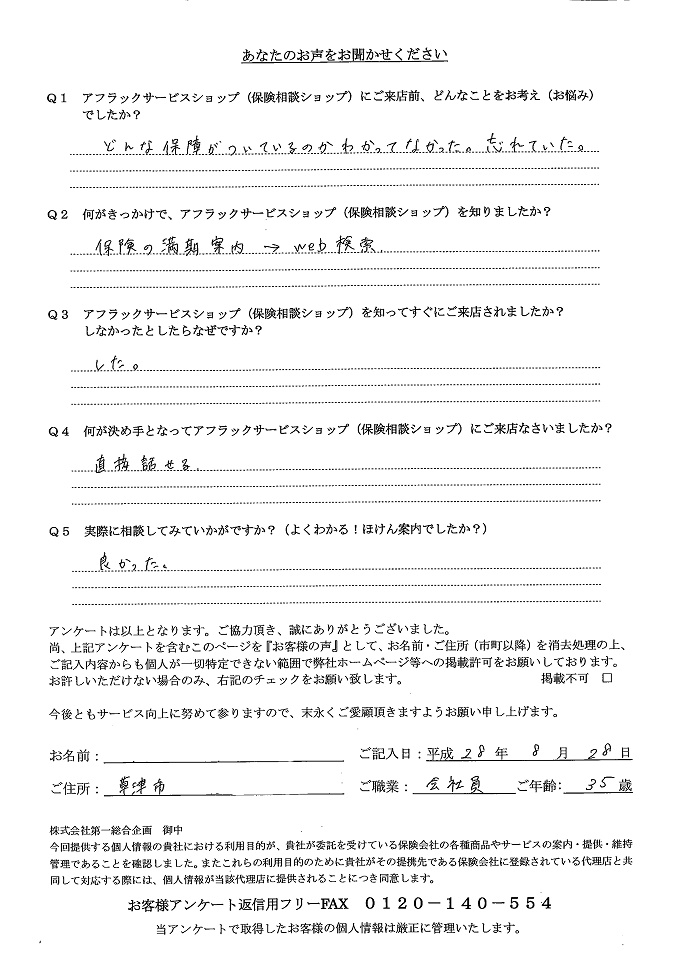 あなたのお声をお聞かせください
Ｑ１　アフラックサービスショップ（保険相談ショップ）にご来店前、どんなことをお考え（お悩み）
でしたか？
どんな保障がついているのかわかってなかった。忘れていた。
Ｑ２　何がきっかけで、アフラックサービスショップ（保険相談ショップ）を知りましたか？
保険の満期案内 → web検索.
Ｑ３　アフラックサービスショップ（保険相談ショップ）を知ってすぐにご来店されましたか？
しなかったとしたらなぜですか？
した。
Ｑ４　何が決め手となってアフラックサービスショップ（保険相談ショップ）にご来店なさいましたか？
直接話せる.
Ｑ５　実際に相談してみていかがですか？（よくわかる！ほけん案内でしたか？）
良かった。
アンケートは以上となります。ご協力頂き、誠にありがとうございました。
尚、上記アンケートを含むこのページを『お客様の声』として、お名前・ご住所（市町以降）を消去処理の上、
ご記入内容からも個人が一切特定できない範囲で弊社ホームページ等への掲載許可をお願いしております。
お許しいただけない場合のみ、右記のチェックをお願い致します。　掲載不可　□
今後ともサービス向上に努めて参りますので、末永くご愛顧頂きますようお願い申し上げます。
お名前：　ご記入日：平成 28 年 8 月 28 日
ご住所： 草津市　ご職業： 会社員　ご年齢： 35 歳
株式会社第一総合企画　御中
今回提供する個人情報の貴社における利用目的が、貴社が委託を受けている保険会社の各種商品やサービスの案内・提供・維持
管理であることを確認しました。またこれらの利用目的のために貴社がその提携先である保険会社に登録されている代理店と共
同して対応する際には、個人情報が当該代理店に提供されることにつき同意します。
お客様アンケート返信用フリーFAX　０１２０－１４０－５５４
当アンケートで取得したお客様の個人情報は厳正に管理いたします。